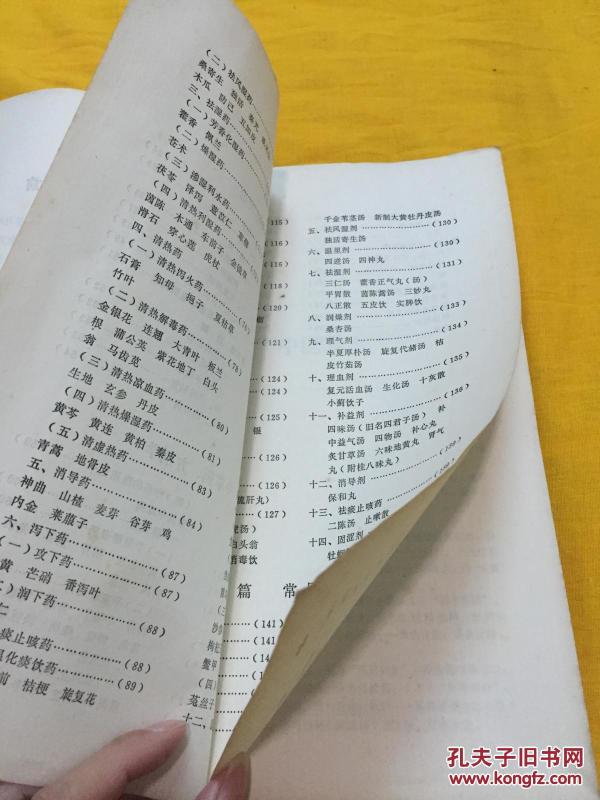 (二)祛风湿药
桑寄生 独活
木瓜 防己 五加皮
三、祛湿药
(一)芳香化湿药
藿香 佩兰
(二)燥湿药
苍术
(三)渗湿利水药
茯苓 泽泻 薏苡仁
(四)清热利湿药
茵陈 木通 车前子 金钱草
滑石 穿心莲 虎杖
四、清热药
(一)清热泻火药
石膏 知母 栀子 夏枯草
竹叶
(二)清热解毒药 (78)
金银花 连翘 大青叶 板兰
根 蒲公英 紫花地丁 白头
翁 马齿苋
(三)清热凉血药 (80)
生地 玄参 丹皮
(四)清热燥湿药
黄芩 黄连 黄柏 秦皮
(五)清虚热药 (83)
青蒿 地骨皮
五、消导药 (84)
神曲 山楂 麦芽 谷芽 鸡
内金 莱菔子
六、泻下药 (87)
(一)攻下药 (87)
黄 芒硝 番泻叶
二)润下药 (88)
仁
痰止咳药 (88)
温化痰饮药 (89)
前 桔梗 旋复花
(115)
(116)
(118)
(120)
(121)
(124)
(124)
(125)
银
(126)
(126)
疏肝丸)
(127)
虎汤)
白头翁
消毒饮
千金苇茎汤 新制大黄牡丹皮汤
五、祛风湿剂 (130)
独活寄生汤
六、温里剂 (130)
四逆汤 四神丸
七、祛湿剂 (131)
三仁汤 藿香正气丸(汤)
平胃散 茵陈蒿汤 三妙丸
八正散 五皮饮 实脾饮
八、润燥剂 (133)
桑杏汤
九、理气剂 (134)
半夏厚朴汤 旋复代赭汤 桔
皮竹茹汤
十、理血剂 (135)
复元活血汤 生化汤 十灰散
小蓟饮子
十一、补益剂 (136)
四味汤(旧名四君子汤) 补
中益气汤 四物汤 补心丸
炙甘草汤 六味地黄丸 肾气
丸(附桂八味丸)
十二、消导剂
保和丸
十三、祛痰止咳药
二陈汤 止嗽散
十四、固涩剂
牡蛎
篇 常
(141)
(141)
(141)
枸杞
鳖甲
(四)
菟丝子
十二、
孔夫子旧书网
www.kongfz.com